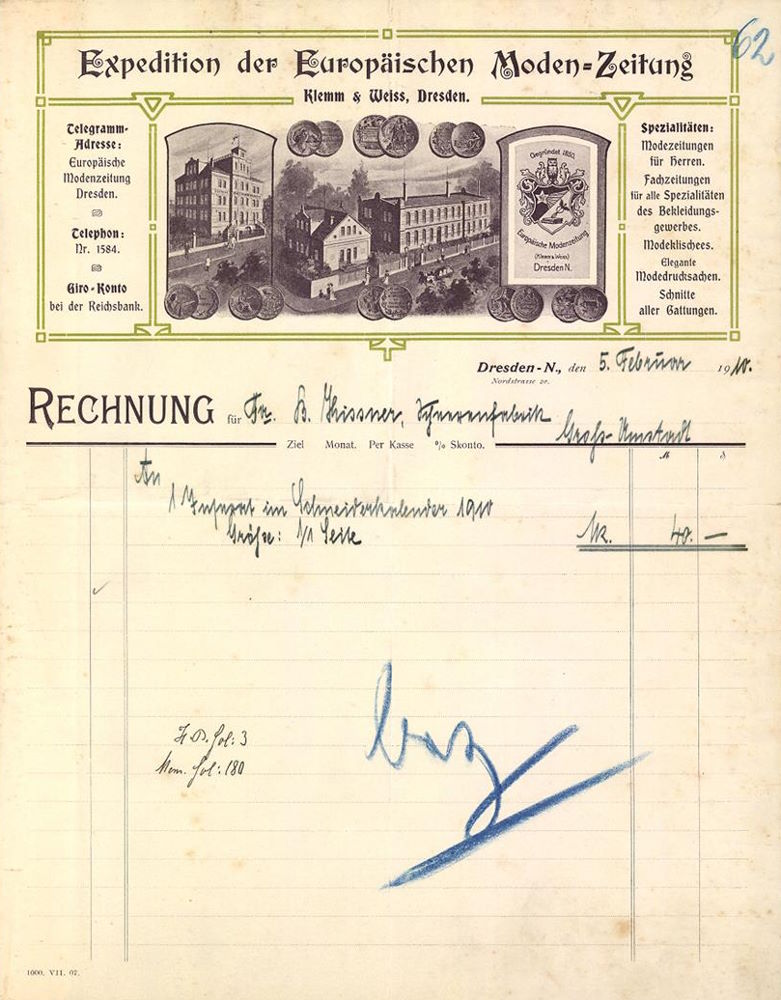 62
Expedition der Europäischen Moden=Zeitung
Klemm & Weiss, Dresden.
Telegramm-
Adresse:
Europäische
Modenzeitung
Dresden.
Telephon:
Nr. 1584.
Giro-Konto
bei der Reichsbank.
Gegründet 1850
Europäische Modenzeitung
(Klemm & Weiss)
Dresden N.
Spezialitäten:
Modezeitungen
für Herren.
Fachzeitungen
für alle Spezialitäten
des Bekleidungs-
gewerbes.
Modeklischees.
Elegante
Modedrucksachen.
Schnitte
aller Gattungen.
Dresden-N., den 5. Februar 1910.
Nordstrasse 20.
RECHNUNG für Fr. B. Scheerenfabrik
Gross-Umstadt
Ziel Monat. Per Kasse % Skonto.
An
1 Inserat im Schneiderkalender 1910
Grösse: 1/1 Seite Mk. 40. —
fol: 3
fol: 180
1000. VII. 07.